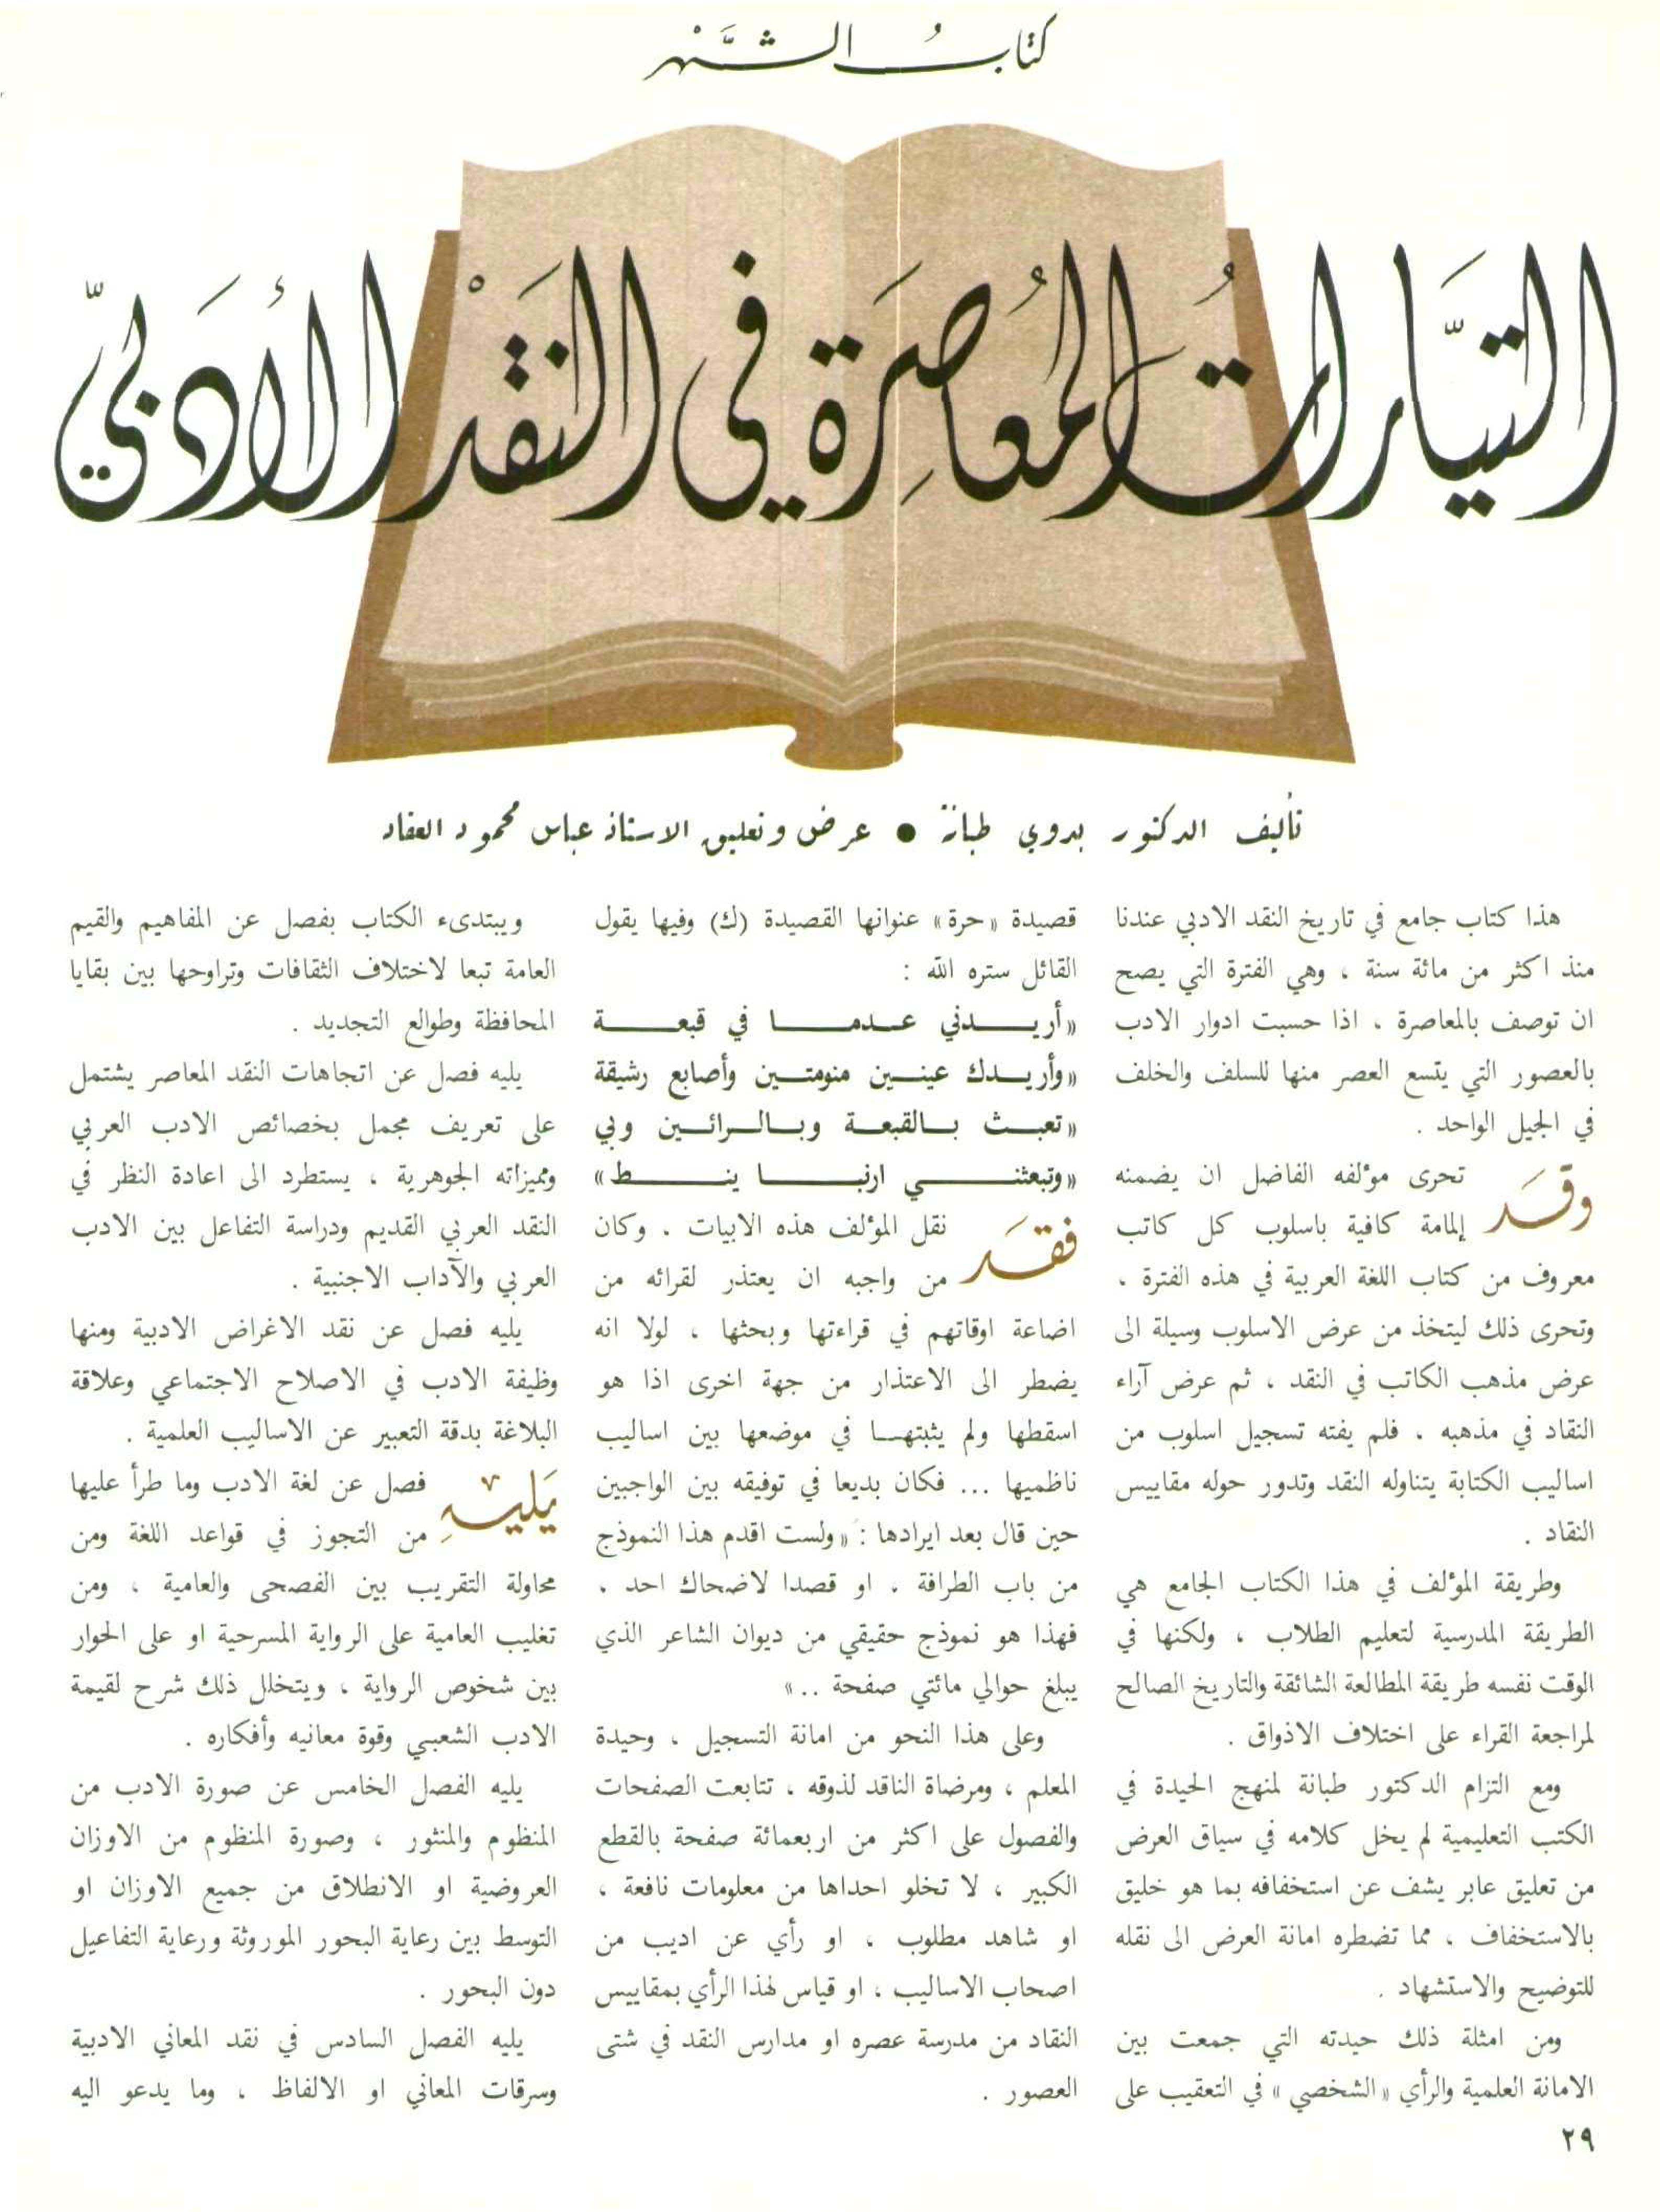 كتابُ الشَّهْر
التيَّاراتُ المُعاصِرَة في النَقَدْ الأَدَبيّ
تأليف الدكتور بدوي طبانة ● عرض وتعليق الاستاذ عباس محمود العقاد
هذا كتاب جامع في تاريخ النقد الادبي عندنا
منذ اكثر من مائة سنة ، وهي الفترة التي يصح
ان توصف بالمعاصرة ، اذا حسبت ادوار الادب
بالعصور التي يتسع العصر منها للسلف والخلف
في الجيل الواحد .
وقَد تحرى مؤلفه الفاضل ان يضمنه
إلمامة كافية باسلوب كل كاتب
معروف من كتاب اللغة العربية في هذه الفترة ،
وتحرى ذلك ليتخذ من عرض الاسلوب وسيلة الى
عرض مذهب الكاتب في النقد ، ثم عرض آراء
النقاد في مذهبه ، فلم يفته تسجيل اسلوب من
اساليب الكتابة يتناوله النقد وتدور حوله مقاييس
النقاد .
وطريقة المؤلف في هذا الكتاب الجامع هي
الطريقة المدرسية لتعليم الطلاب ، ولكنها في
الوقت نفسه طريقة المطالعة الشائقة والتاريخ الصالح
لمراجعة القراء على اختلاف الاذواق .
ومع التزام الدكتور طبانة لمنهج الحيدة في
الكتب التعليمية لم يخل كلامه في سياق العرض
من تعليق عابر يشف عن استخفافه بما هو خليق
بالاستخفاف ، مما تضطره امانة العرض الى نقله
للتوضيح والاستشهاد .
ومن امثلة ذلك حيدته التي جمعت بين
الامانة العلمية والرأي «الشخصي» في التعقيب على
قصيدة «حرة» عنوانها القصيدة (ك) وفيها يقول
القائل ستره الله :
«أريـدني عـدمـا في قبعـة
«وأريـدك عينـين منومتـين وأصابع رشيقة
«تعبـث بـالقبعـة وبـالـرائـين وبي
«وتبعثنـي ارنبـا ينـط»
فقَد نقل المؤلف هذه الابيات . وكان
من واجبه ان يعتذر لقرائه من
اضاعة اوقاتهم في قراءتها وبحثها ، لولا انه
يضطر الى الاعتذار من جهة اخرى اذا هو
اسقطها ولم يثبتهـا في موضعها بين اساليب
ناظميها ... فكان بديعا في توفيقه بين الواجبين
حين قال بعد ايرادها : «ولست اقدم هذا النموذج
من باب الطرافة ، او قصدا لاضحاك احد ،
فهذا هو نموذج حقيقي من ديوان الشاعر الذي
يبلغ حوالي مائتي صفحة ..»
وعلى هذا النحو من امانة التسجيل ، وحيدة
المعلم ، ومرضاة الناقد لذوقه ، تتابعت الصفحات
والفصول على اكثر من اربعمائة صفحة بالقطع
الكبير ، لا تخلو احداها من معلومات نافعة ،
او شاهد مطلوب ، او رأي عن اديب من
اصحاب الاساليب ، او قياس لهذا الرأي بمقاييس
النقاد من مدرسة عصره او مدارس النقد في شتى
العصور .
ويبتدىء الكتاب بفصل عن المفاهيم والقيم
العامة تبعا لاختلاف الثقافات وتراوحها بين بقايا
المحافظة وطوالع التجديد .
يليه فصل عن اتجاهات النقد المعاصر يشتمل
على تعريف مجمل بخصائص الادب العربي
ومميزاته الجوهرية ، يستطرد الى اعادة النظر في
النقد العربي القديم ودراسة التفاعل بين الادب
العربي والآداب الاجنبية .
يليه فصل عن نقد الاغراض الادبية ومنها
وظيفة الادب في الاصلاح الاجتماعي وعلاقة
البلاغة بدقة التعبير عن الاساليب العلمية .
يَليهِ فصل عن لغة الادب وما طرأ عليها
من التجوز في قواعد اللغة ومن
محاولة التقريب بين الفصحى والعامية ، ومن
تغليب العامية على الرواية المسرحية او على الحوار
بين شخوص الرواية ، ويتخلل ذلك شرح لقيمة
الادب الشعبي وقوة معانيه وأفكاره .
يليه الفصل الخامس عن صورة الادب من
المنظوم والمنثور ، وصورة المنظوم من الاوزان
العروضية او الانطلاق من جميع الاوزان او
التوسط بين رعاية البحور الموروثة ورعاية التفاعيل
دون البحور .
يليه الفصل السادس في نقد المعاني الادبية
وسرقات المعاني او الالفاظ ، وما يدعو اليه
٢٩